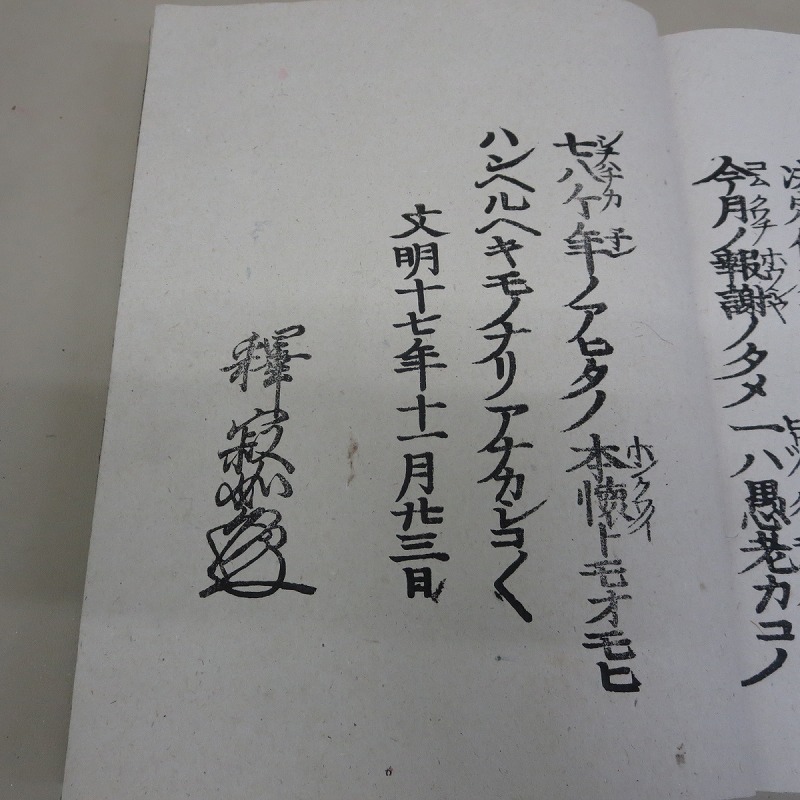 今月ノ報謝ノタメ一ハ愚老カコノ
七八ケ年ノアヒタノ本懐トモオモヒ
ハンヘルヘキモノナリアナカシコ〱
文明十七年十一月廿三日
釋